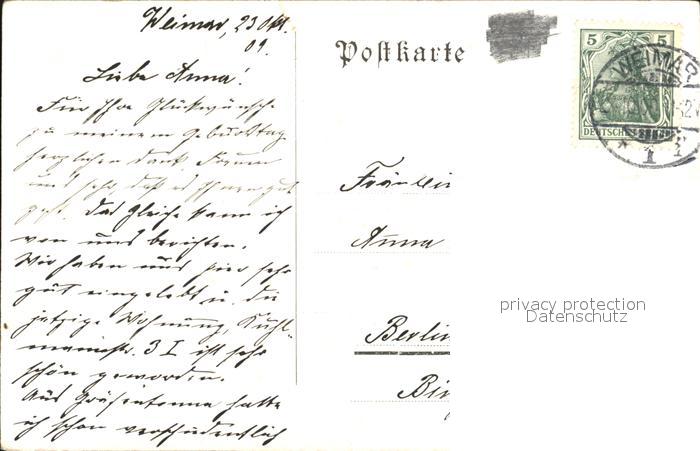 Weimar, 23 Okt.
09.
Liebe Anna!
Für Ihre Glückwünsche
zu meinem Geburtstag
herzlichen Dank. Freuen
uns sehr, daß es Ihnen gut
geht. Das Gleiche kann ich
von uns berichten.
Wir haben uns hier sehr
gut eingelebt u. die
jetzige Wohnung, Kuhl-
mannstr. 3 I ist sehr
schön geworden.
Aus Gräfentonna hatte
ich schon verschiedentlich
Postkarte
5 5
DEUTSCHES
WEIMAR
1
Fräulein
Anna
Berlin
privacy protection
Datenschutz